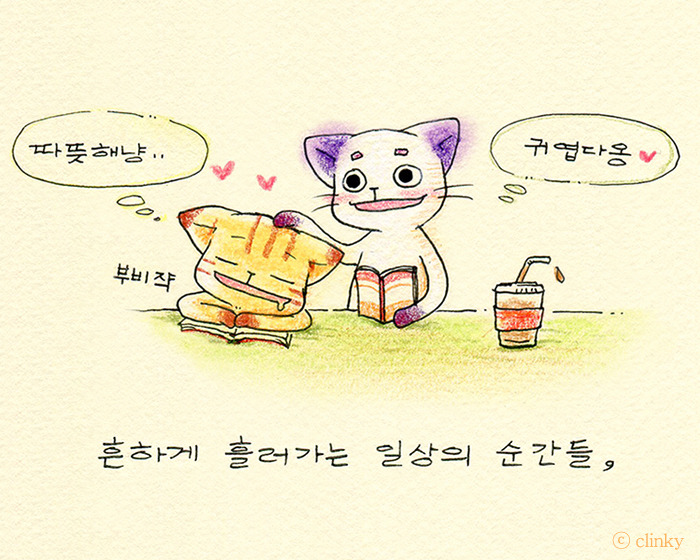 따뜻해냥..
귀엽다옹
부비쟉
흔하게 흘러가는 일상의 순간들,
ⓒ clinky